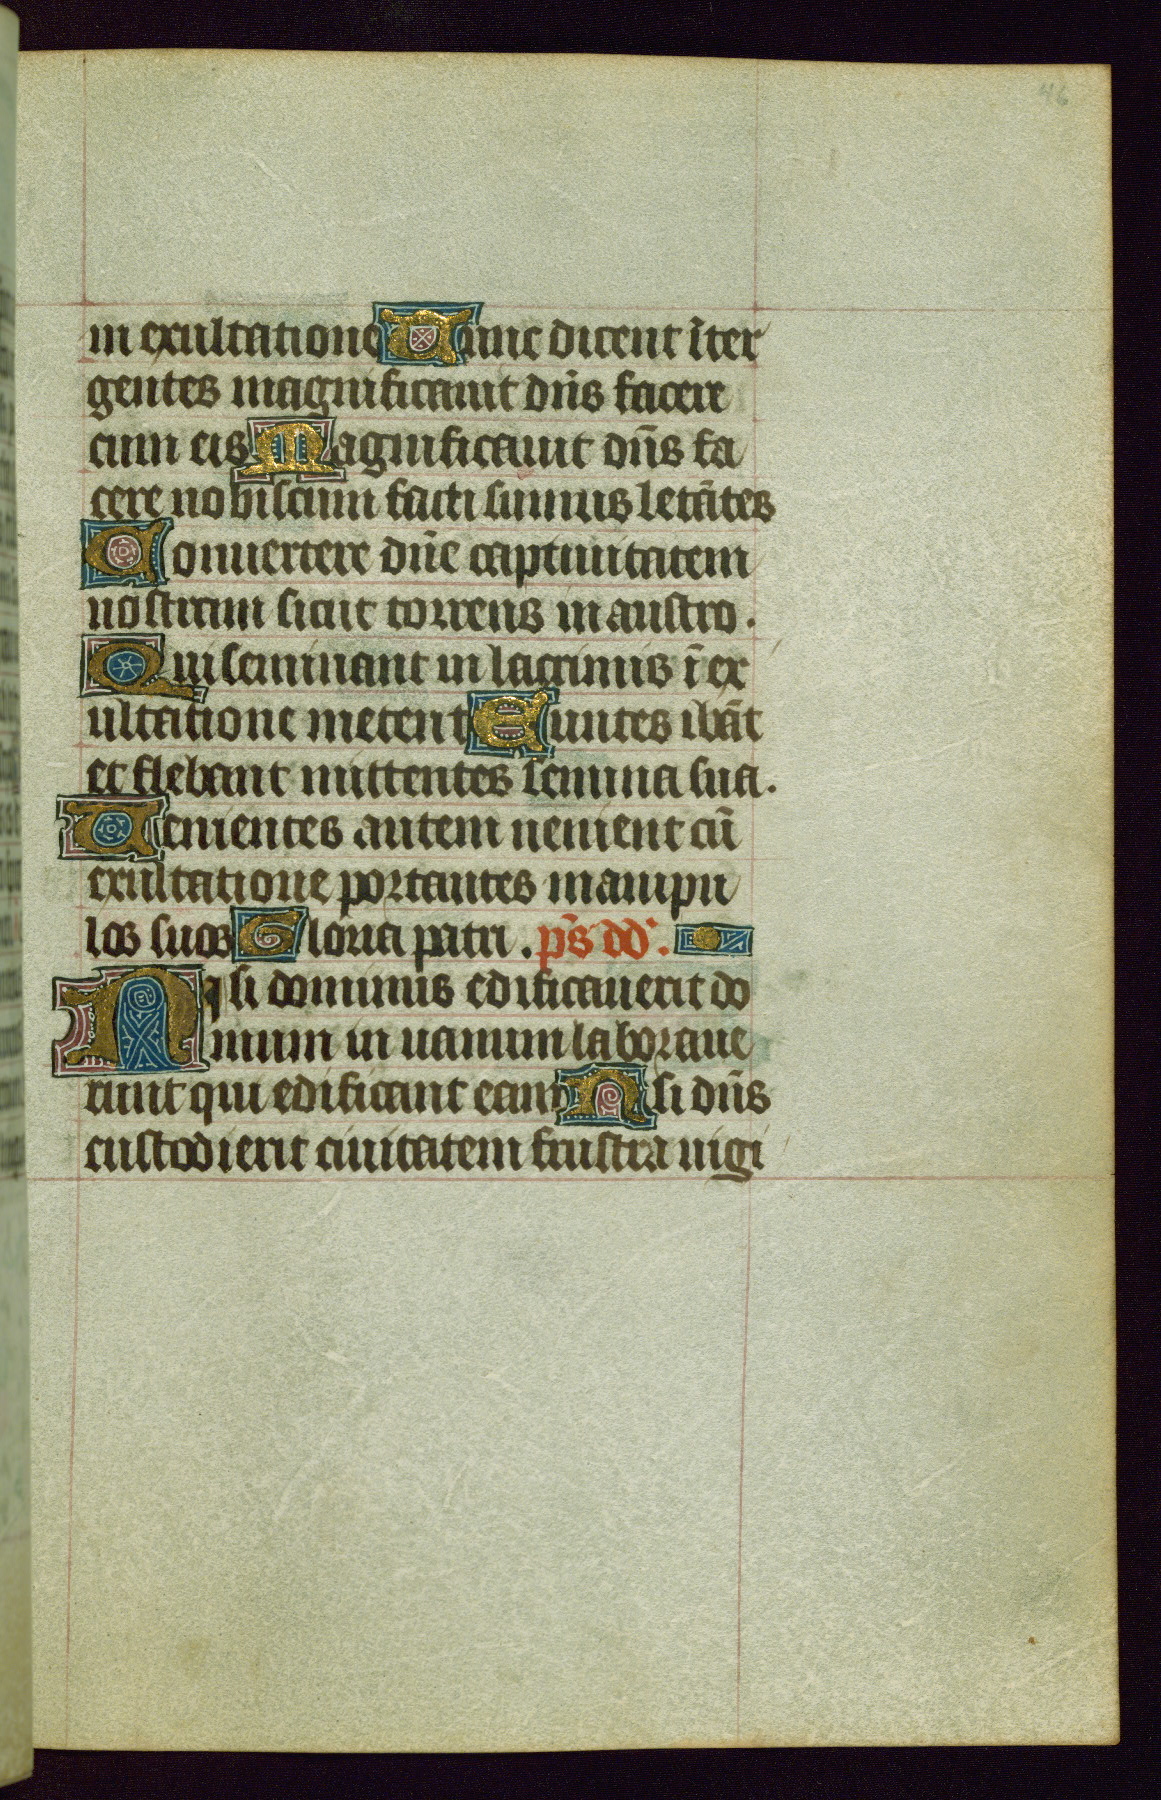 46
in exultatione Tunc dicent īter
gentes magnificauit dn̄s facere
cum eis Magnificauit dn̄s fa
cere nobiscum facti sumus letātes
Conuertere dn̄e captiuitatem
nostram sicut torrens in austro.
Qui seminant in lacrimis ī ex
ultatione metent Euntes ibāt
et flebant mittentes semina sua.
Uenientes autem uenient cū
exultatione portantes manipu
los suos Gloria patri. ps̄ dd'.
Nisi dominus edificauerit do
mum in uanum laboraue
runt qui edificant eam Nisi dn̄s
custodierit ciuitatem frustra uigi